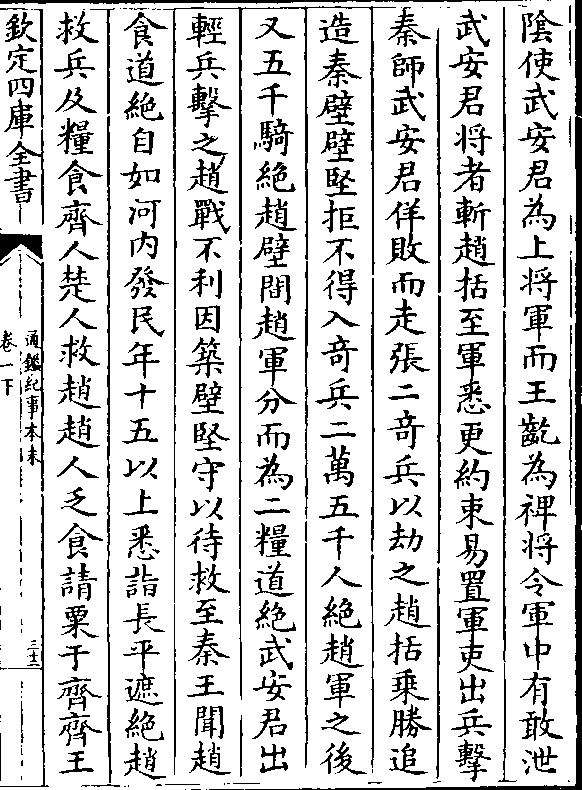 陰使武安君為上将軍而王齕為裨将令軍中有敢泄
武安君将者斬趙括至軍悉更約束易置軍吏出兵擊
秦師武安君佯敗而走張二竒兵以劫之趙括乗勝追
造秦壁壁堅拒不得入竒兵二萬五千人絶趙軍之後
又五千騎絶趙壁間趙軍分而為二糧道絶武安君出
輕兵擊之趙戰不利因築壁堅守以待救至秦王聞趙
食道絶自如河内發民年十五以上悉詣長平遮絶趙
救兵及糧食齊人楚人救趙趙人乏食請粟于齊齊王
欽定四庫全書
通鑑紀事本末
卷一下